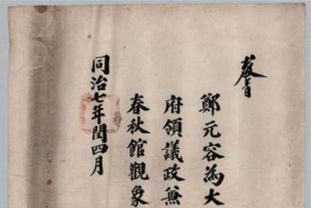 鄭元容為大
府領議政兼
春秋館觀象
同治七年閏四月